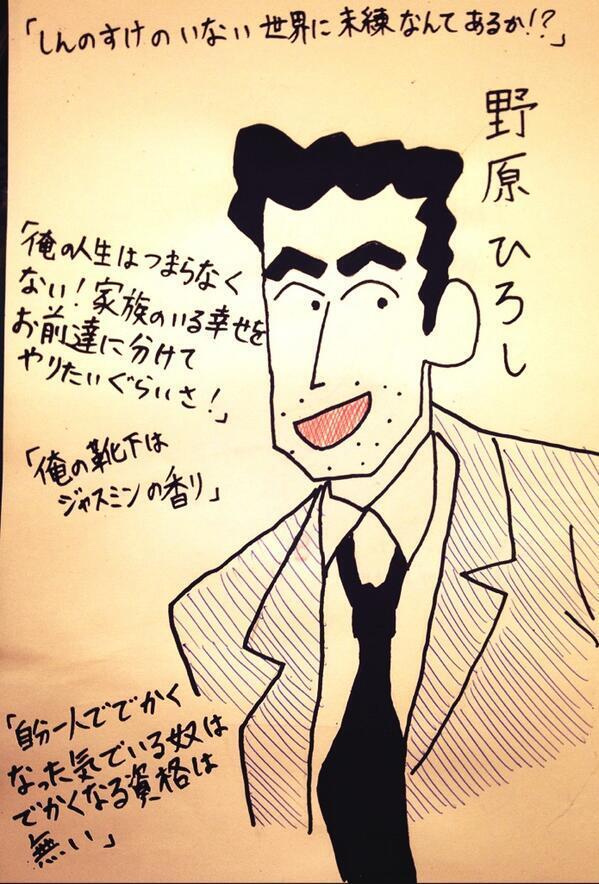 「しんのすけのいない世界に未練なんてあるか!?」
野原ひろし
「俺の人生はつまらなく
ない!家族のいる幸せを
お前達に分けて
やりたいぐらいさ!」
「俺の靴下は
ジャスミンの香り」
「自分一人ででかく
なった気でいる奴は
でかくなる資格は
無い」